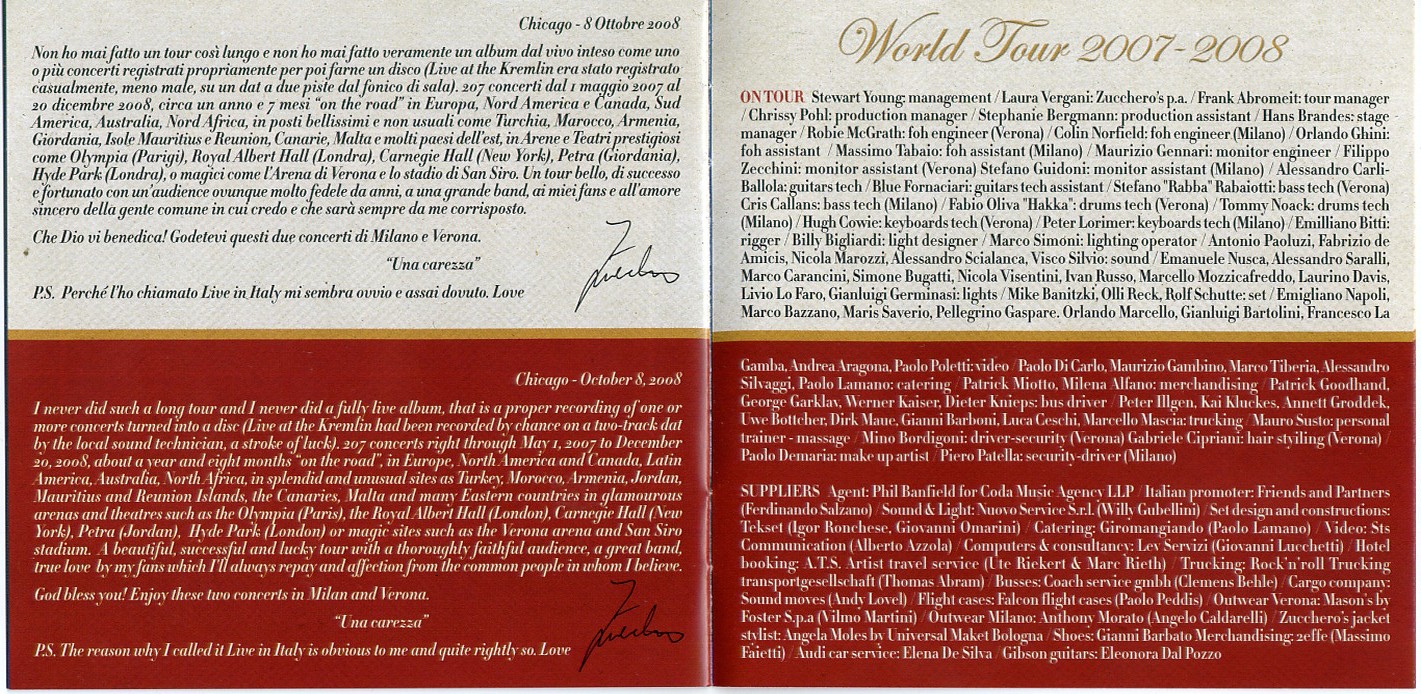 Chicago - 8 Ottobre 2008
Non ho mai fatto un tour così lungo e non ho mai fatto veramente un album dal vivo inteso come uno
o più concerti registrati propriamente per poi farne un disco (Live at the Kremlin era stato registrato
casualmente, meno male, su un dat a due piste dal fonico di sala). 207 concerti dal 1 maggio 2007 al
20 dicembre 2008, circa un anno e 7 mesi "on the road" in Europa, Nord America e Canada, Sud
America, Australia, Nord Africa, in posti bellissimi e non usuali come Turchia, Marocco, Armenia,
Giordania, Isole Mauritius e Reunion, Canarie, Malta e molti paesi dell'est, in Arene e Teatri prestigiosi
come Olympia (Parigi), Royal Albert Hall (Londra), Carnegie Hall (New York), Petra (Giordania),
Hyde Park (Londra), o magici come l'Arena di Verona e lo stadio di San Siro. Un tour bello, di successo
e fortunato con un'audience ovunque molto fedele da anni, a una grande band, ai miei fans e all'amore
sincero della gente comune in cui credo e che sarà sempre da me corrisposto.
Che Dio vi benedica! Godetevi questi due concerti di Milano e Verona.
"Una carezza"
P.S. Perché l'ho chiamato Live in Italy mi sembra ovvio e assai dovuto. Love
Chicago - October 8, 2008
I never did such a long tour and I never did a fully live album, that is a proper recording of one or
more concerts turned into a disc (Live at the Kremlin had been recorded by chance on a two-track dat
by the local sound technician, a stroke of luck). 207 concerts right through May 1, 2007 to December
20, 2008, about a year and eight months "on the road", in Europe, North America and Canada, Latin
America, Australia, North Africa, in splendid and unusual sites as Turkey, Morocco, Armenia, Jordan,
Mauritius and Reunion Islands, the Canaries, Malta and many Eastern countries in glamourous
arenas and theatres such as the Olympia (Paris), the Royal Albert Hall (London), Carnegie Hall (New
York), Petra (Jordan), Hyde Park (London) or magic sites such as the Verona arena and San Siro
stadium. A beautiful, successful and lucky tour with a thoroughly faithful audience, a great band,
true love by my fans which I'll always repay and affection from the common people in whom I believe.
God bless you! Enjoy these two concerts in Milan and Verona.
"Una carezza"
P.S. The reason why I called it Live in Italy is obvious to me and quite rightly so. Love
World Tour 2007-2008
ON TOUR Stewart Young: management / Laura Vergani: Zucchero's p.a. / Frank Abromeit: tour manager
/ Chrissy Pohl: production manager / Stephanie Bergmann: production assistant / Hans Brandes: stage
manager / Robie McGrath: foh engineer (Verona) / Colin Norfield: foh engineer (Milano) / Orlando Ghini:
foh assistant / Massimo Tabaio: foh assistant (Milano) / Maurizio Gennari: monitor engineer / Filippo
Zecchini: monitor assistant (Verona) Stefano Guidoni: monitor assistant (Milano) / Alessandro Carli-
Ballola: guitars tech / Blue Fornaciari: guitars tech assistant / Stefano "Rabba" Rabaiotti: bass tech (Verona)
Cris Callans: bass tech (Milano) / Fabio Oliva "Hakka": drums tech (Verona) / Tommy Noack: drums tech
(Milano) / Hugh Cowie: keyboards tech (Verona) / Peter Lorimer: keyboards tech (Milano) / Emilliano Bitti:
rigger / Billy Bigliardi: light designer / Marco Simoni: lighting operator / Antonio Paoluzi, Fabrizio de
Amicis, Nicola Marozzi, Alessandro Scialanca, Visco Silvio: sound / Emanuele Nusca, Alessandro Saralli,
Marco Carancini, Simone Bugatti, Nicola Visentini, Ivan Russo, Marcello Mozzicafreddo, Laurino Davis,
Livio Lo Faro, Gianluigi Germinasi: lights / Mike Banitzki, Olli Reck, Rolf Schutte: set / Emigliano Napoli,
Marco Bazzano, Maris Saverio, Pellegrino Gaspare. Orlando Marcello, Gianluigi Bartolini, Francesco La
Gamba, Andrea Aragona, Paolo Poletti: video / Paolo Di Carlo, Maurizio Gambino, Marco Tiberia, Alessandro
Silvaggi, Paolo Lamano: catering / Patrick Miotto, Milena Alfano: merchandising / Patrick Goodhand,
George Garklav, Werner Kaiser, Dieter Knieps: bus driver / Peter Illgen, Kai Kluckes, Annett Groddek,
Uwe Bottcher, Dirk Maue, Gianni Barboni, Luca Ceschi, Marcello Mascia: trucking / Mauro Susto: personal
trainer - massage / Mino Bordigoni: driver-security (Verona) Gabriele Cipriani: hair styiling (Verona) /
Paolo Demaria: make up artist / Piero Patella: security-driver (Milano)
SUPPLIERS Agent: Phil Banfield for Coda Music Agency LLP / Italian promoter: Friends and Partners
(Ferdinando Salzano) / Sound & Light: Nuovo Service S.r.l. (Willy Gubellini) / Set design and constructions:
Tekset (Igor Ronchese, Giovanni Omarini) / Catering: Giromangiando (Paolo Lamano) / Video: Sts
Communication (Alberto Azzola) / Computers & consultancy: Lev Servizi (Giovanni Lucchetti) / Hotel
booking: A.T.S. Artist travel service (Ute Riekert & Marc Rieth) / Trucking: Rock'n'roll Trucking
transportgesellschaft (Thomas Abram) / Busses: Coach service gmbh (Clemens Behle) / Cargo company:
Sound moves (Andy Lovel) / Flight cases: Falcon flight cases (Paolo Peddis) / Outwear Verona: Mason's by
Foster S.p.a (Vilmo Martini) / Outwear Milano: Anthony Morato (Angelo Caldarelli) / Zucchero's jacket
stylist: Angela Moles by Universal Maket Bologna / Shoes: Gianni Barbato Merchandising: 2effe (Massimo
Faietti) / Audi car service: Elena De Silva / Gibson guitars: Eleonora Dal Pozzo